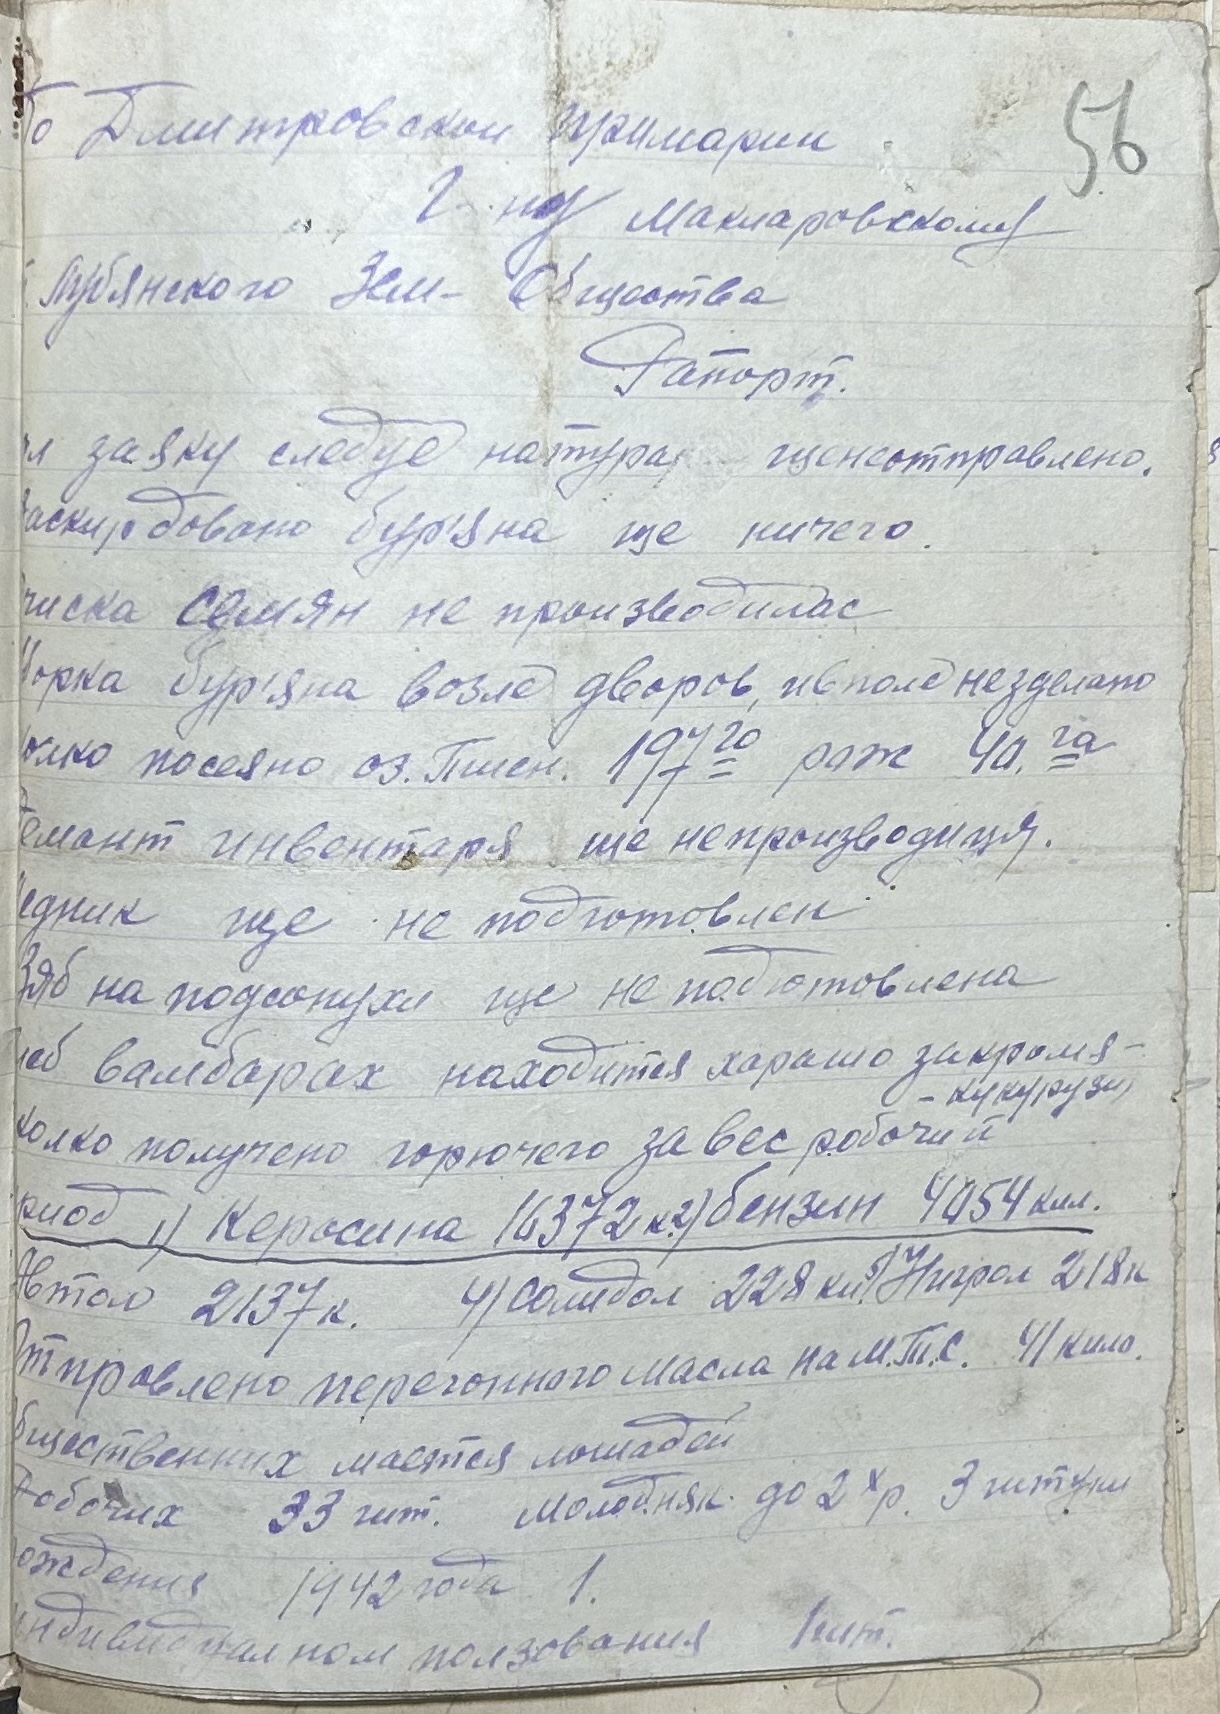 56
По Дмитровскои примарии
Г-ну Макларовскому
Лубянского Зем- Общества
Рапорт.
заяку следуе натура, щенеотправлено.
Заскирдовано бур'яна ще ничего.
чиска семян не производилас
Уборка бур'яна возле дворов, ивполе незделано
колко посеяно оз. Пшен. 197 га раж 40. га
Ремонт инвентаря ще непроизводиця.
ще не подготовлен
Зяб на подсонухи ще не подготовлена
хлеб вамбарах находится харашо закромя-
- кукурузи
колко получено горючего за вес робочий
риод 1) Керосина 16372 к. 2) бензин 4054 кил.
Автол 2137 к. 4) Солидол 228 кил 5) Нигрол 218 к
Отправлено перегонного масла на М.Т.С. 41 кило.
бщественних мается лошадей
Робочих 33 шт. Молодняк до 2х р. 3 штуки
рождения 1942 года 1.
ндивидуалном ползования 1 шт.